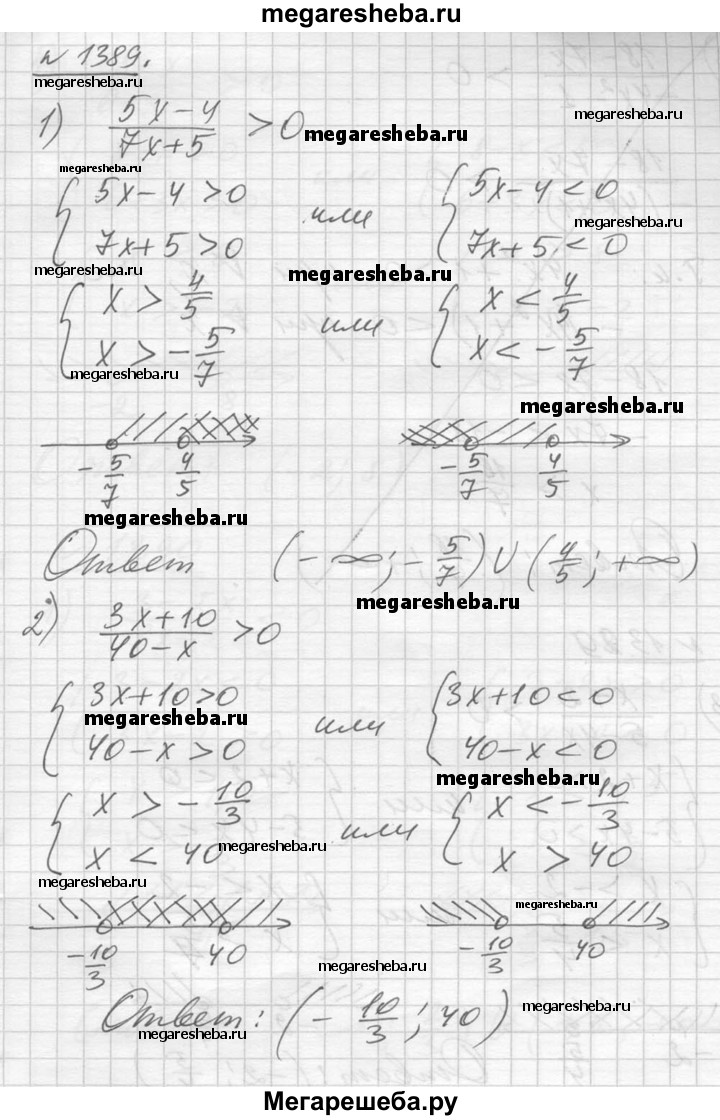 megaresheba.ru
№ 1389.
megaresheba.ru
1) (5x-4)/(7x+5) > 0
megaresheba.ru
megaresheba.ru
megaresheba.ru
{ 5x-4>0 или { 5x-4<0
megaresheba.ru
{ 7x+5>0 { 7x+5<0
megaresheba.ru
megaresheba.ru
{ x > 4/5 или { x < 4/5
{ x > -5/7 { x < -5/7
megaresheba.ru
megaresheba.ru
-5/7 4/5 -5/7 4/5
megaresheba.ru
Ответ (-∞; -5/7) U (4/5; +∞)
megaresheba.ru
2) (3x+10)/(40-x) > 0
{ 3x+10>0 или { 3x+10<0
megaresheba.ru
{ 40-x>0 { 40-x<0
megaresheba.ru
{ x > -10/3 или { x < -10/3
{ x < 40 { x > 40
megaresheba.ru
megaresheba.ru
megaresheba.ru
-10/3 40 -10/3 40
megaresheba.ru
Ответ: (-10/3; 40)
megaresheba.ru
megaresheba.ru
Мегарешеба.ру